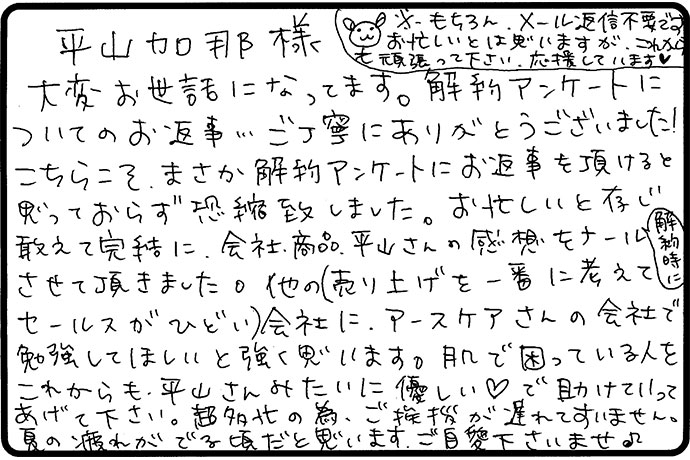 平山加那様
※もちろん、メール返信不要です
お忙しいとは思いますが、これから
も頑張って下さい。応援しています♥
大変お世話になってます。解約アンケートに
ついてのお返事…ご丁寧にありがとうございました!
こちらこそ、まさか解約アンケートにお返事を頂けると
思っておらず恐縮致しました。お忙しいと存じ
敢えて完結に、会社、商品、平山さんの感想をメール
解約時に
させて頂きました。他の(売り上げを一番に考えて
セールスがひどい)会社に、アースケアさんの会社で
勉強してほしいと強く思います。肌で困っている人を
これからも、平山さんみたいに優しい♡で助けていって
あげて下さい。超多忙の為、ご挨拶が遅れてすいません。
夏の疲れがでる頃だと思います、ご自愛下さいませ♫